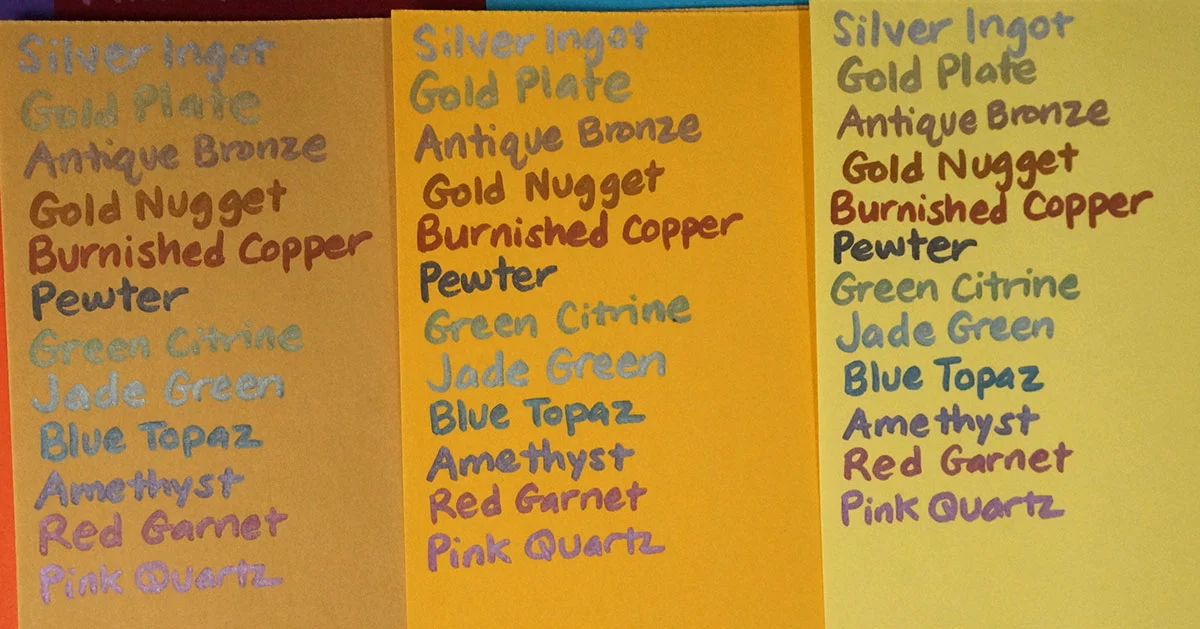 Silver Ingot
Gold Plate
Antique Bronze
Gold Nugget
Burnished Copper
Pewter
Green Citrine
Jade Green
Blue Topaz
Amethyst
Red Garnet
Pink Quartz
Silver Ingot
Gold Plate
Antique Bronze
Gold Nugget
Burnished Copper
Pewter
Green Citrine
Jade Green
Blue Topaz
Amethyst
Red Garnet
Pink Quartz
Silver Ingot
Gold Plate
Antique Bronze
Gold Nugget
Burnished Copper
Pewter
Green Citrine
Jade Green
Blue Topaz
Amethyst
Red Garnet
Pink Quartz